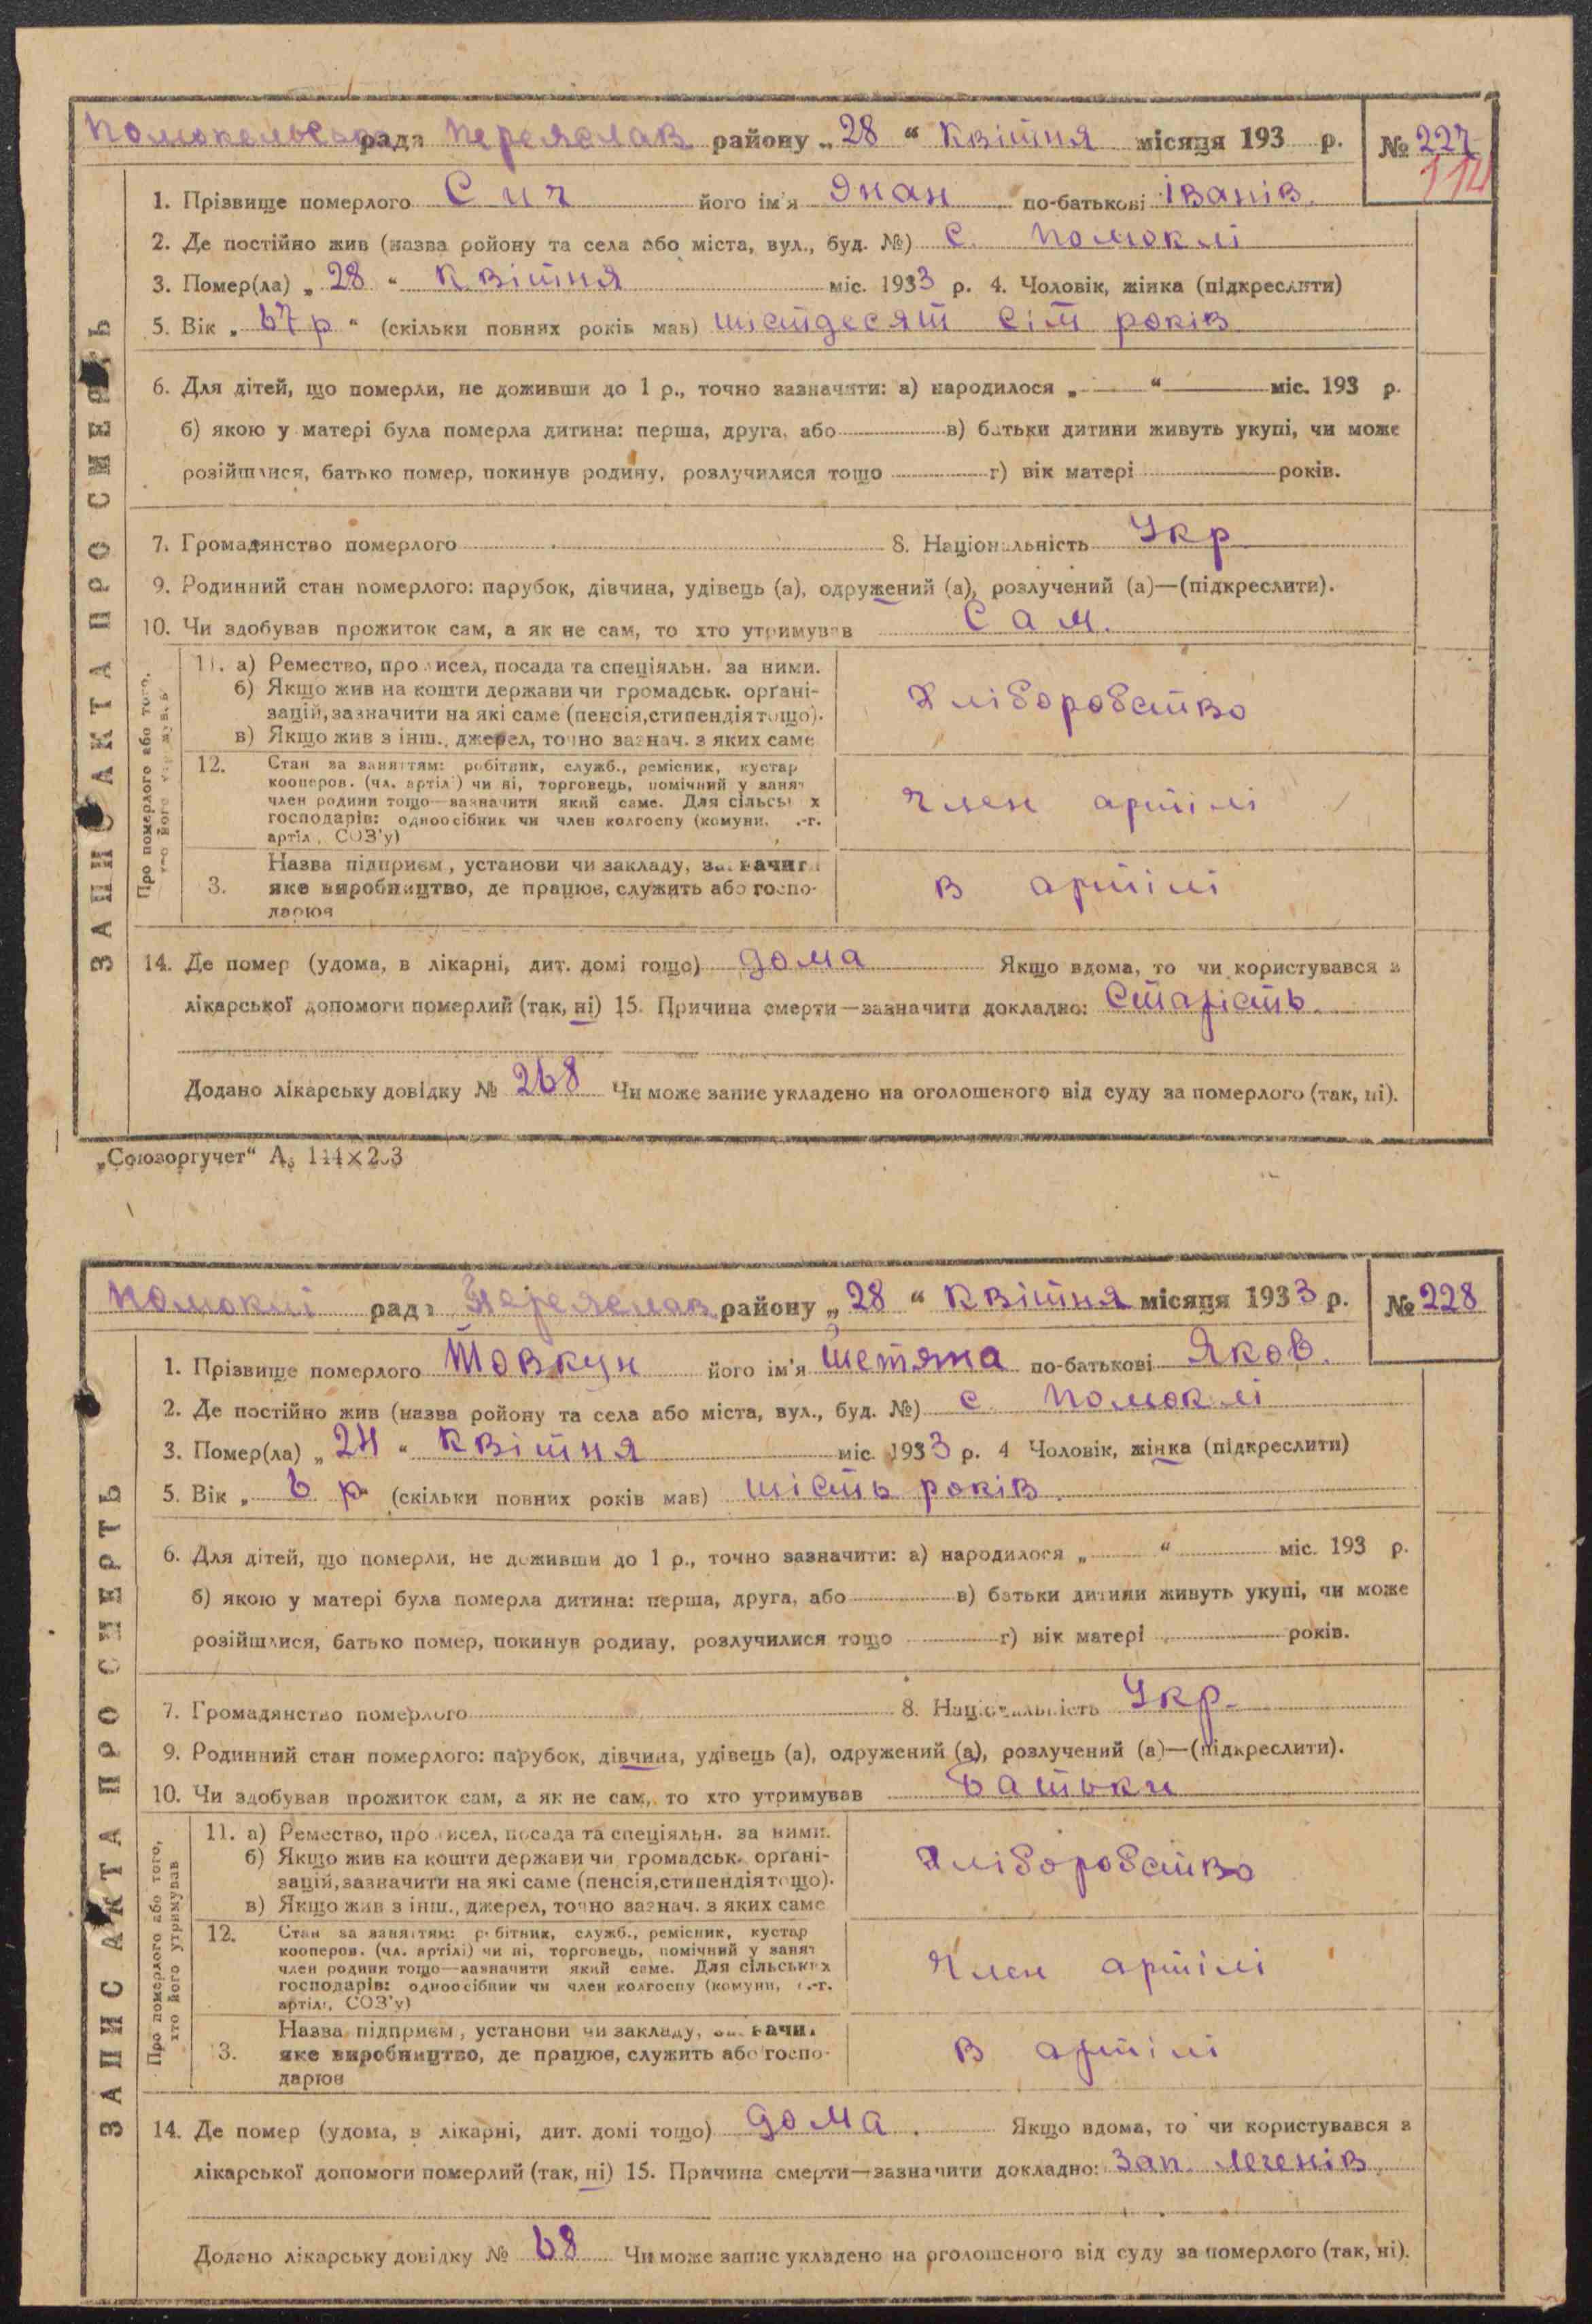 Помокельська рада Переяслав району „28“ Квітня місяця 193 р. № 227
114
ЗАПИС АКТА ПРО СМЕРТЬ
1. Прізвище померлого Сич його ім'я Янан по-батькові Іванів.
2. Де постійно жив (назва ройону та села або міста, вул., буд. №) с. Помоклі
3. Помер(ла) „28“ Квітня міс. 1933 р. 4. Чоловік, жінка (підкреслити)
5. Вік „67 р“ (скільки повних років мав) шістдесят сім років
6. Для дітей, що померли, не доживши до 1 р., точно зазначити: а) народилося „ “ міс. 193 р.
б) якою у матері була померла дитина: перша, друга, або в) батьки дитини живуть укупі, чи може
розійшлися, батько помер, покинув родину, розлучилися тощо г) вік матері років.
7. Громадянство померлого 8. Національність Укр
9. Родинний стан померлого: парубок, дівчина, удівець (а), одружений (а), розлучений (а)—(підкреслити).
10. Чи здобував прожиток сам, а як не сам, то хто утримував Сам.
Про померлого або того, хто його утримував
11. а) Ремество, промисел, посада та спеціяльн. за ними.
б) Якщо жив на кошти держави чи громадськ. орґані-
зацій, зазначити на які саме (пенсія, стипендія тощо).
в) Якщо жив з інш., джерел, точно зазнач. з яких саме
Хліборобство
12. Стан за заняттям: робітник, служб., ремісник, кустар
кооперов. (чл. артілі) чи ні, торговець, помічний у занят
член родини тощо—зазначити який саме. Для сільських
господарів: одноосібник чи член колгоспу (комуни, с.-г.
артіл, СОЗ'у)
Член артілі
3. Назва підприєм, установи чи закладу, зазначит
яке виробництво, де працює, служить або госпо-
дарює
в артілі
14. Де помер (удома, в лікарні, дит. домі тощо) дома Якщо вдома, то чи користувався з
лікарської допомоги померлий (так, ні) 15. Причина смерти—зазначити докладно: Старість.
Додано лікарську довідку № 268 Чи може запис укладено на оголошеного від суду за померлого (так, ні).
„Союзоргучет“ А5 144×203
Помоклі рада Переяслав району „28“ Квітня місяця 1933 р. № 228
ЗАПИС АКТА ПРО СМЕРТЬ
1. Прізвище померлого Товкун його ім'я Тетяна по-батькові Яков.
2. Де постійно жив (назва ройону та села або міста, вул., буд. №) с. Помоклі
3. Помер(ла) „24“ Квітня міс. 1933 р. 4 Чоловік, жінка (підкреслити)
5. Вік „6 р“ (скільки повних років мав) шість років.
6. Для дітей, що померли, не доживши до 1 р., точно зазначити: а) народилося „ “ міс. 193 р.
б) якою у матері була померла дитина: перша, друга, або в) батьки дитини живуть укупі, чи може
розійшлися, батько помер, покинув родину, розлучилися тощо г) вік матері років.
7. Громадянство померлого 8. Національність Укр.
9. Родинний стан померлого: парубок, дівчина, удівець (а), одружений (а), розлучений (а)—(підкреслити).
10. Чи здобував прожиток сам, а як не сам, то хто утримував Батьки
Про померлого або того, хто його утримував
11. а) Ремество, промисел, посада та спеціяльн. за ними.
б) Якщо жив на кошти держави чи громадськ. орґані-
зацій, зазначити на які саме (пенсія, стипендія тощо).
в) Якщо жив з інш., джерел, точно зазнач. з яких саме
Хліборобство
12. Стан за заняттям: робітник, служб., ремісник, кустар
кооперов. (чл. артілі) чи ні, торговець, помічний у занят
член родини тощо—зазначити який саме. Для сільських
господарів: одноосібник чи член колгоспу (комуни, с.-г.
артілі, СОЗ'у)
Член артілі
3. Назва підприєм, установи чи закладу, зазначи
яке виробництво, де працює, служить або госпо-
дарює
в артілі
14. Де помер (удома, в лікарні, дит. домі тощо) дома. Якщо вдома, то чи користувався з
лікарської допомоги померлий (так, ні) 15. Причина смерти—зазначити докладно: Зап. легенів.
Додано лікарську довідку № 68 Чи може запис укладено на оголошеного від суду за померлого (так, ні).